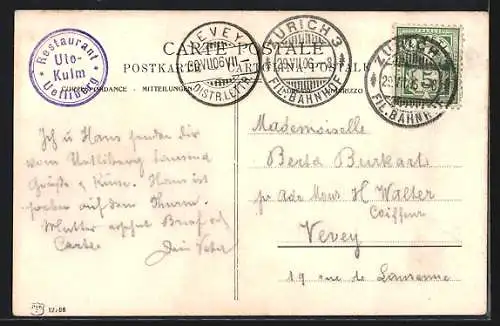 Restaurant
Uto-
Kulm
Uetliberg
CARTE POSTALE
POSTKARTE CARTOLINA POSTALE
CORRESPONDANCE - MITTEILUNGEN
VEVEY
29 VII 06 VII
DISTR. LETTR.
ZÜRICH 3
29 VII 06
FIL. BAHNHOF
ZÜRICH
29 VII 06
FIL. BAHNH
Ich u Hans senden dir
vom Uetliberg tausend
Grüsse & Küsse. Hans ist
soeben auf dem Turm.
Mutter Brief od
Carte. Dein Vater
Mademoiselle
Berta Burkart
pr Adr Mons H Walter
Coiffeur
Vevey
19 rue de Lausanne
12508